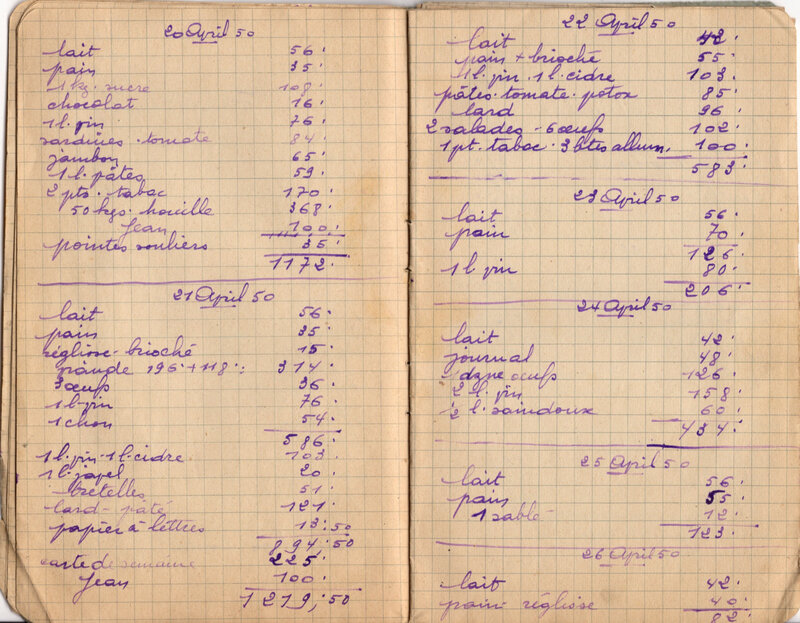 20 April 50
lait 56.
pain 35.
1 kg. sucre 108.
chocolat 16.
1 l. vin 76.
sardines. tomate 84.
jambon 65.
1 l. pâtes 59.
2 pts. tabac 170.
50 kgs. houille 368.
Jean 100.
pointes souliers 35.
1172.
21 April 50
lait 56.
pain 35.
réglisse. brioché 15.
196. + 118.: 314.
3 œufs 36.
1 l. vin 76.
1 chou 54.
586.
1 l. vin. 1 l. cidre 103.
1 l. javel 20.
bretelles 51.
lard - pâté 121.
papier à lettres 13.50
894.50
carte de semaine 225.
Jean 100.
1219.50
22 April 50
lait 42.
pain + brioché 55.
1 l. vin. 1 l. cidre 103.
pâtes. tomate. potox 85.
lard 96.
2 salades. 6 œufs 102.
1 pt. tabac. 3 btes allum. 100.
583.
23 April 50
lait 56.
pain 70.
126.
1 l. vin 80.
206.
24 April 50
lait 42.
journal 48.
dzne œufs 126.
2 l. vin 158.
1/2 l. saindoux 60.
434.
25 April 50
lait 56.
pain 55.
1 sablé 12.
123.
26 April 50
lait 42.
pain réglisse 40.
82.